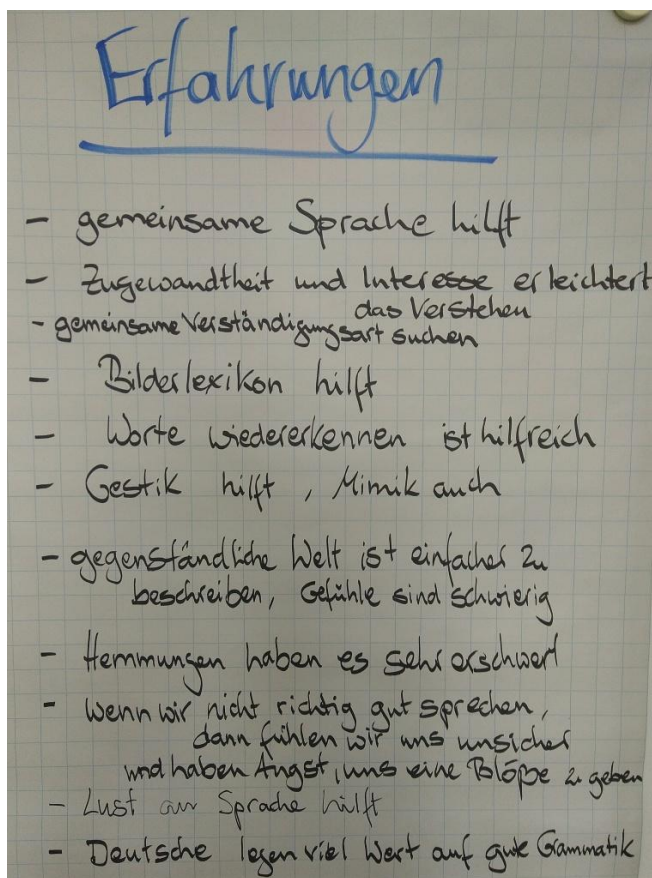 Erfahrungen
- gemeinsame Sprache hilft
- Zugewandtheit und Interesse erleichtert
das Verstehen
- gemeinsame Verständigungsart suchen
- Bilderlexikon hilft
- Worte wiedererkennen ist hilfreich
- Gestik hilft, Mimik auch
- gegenständliche Welt ist einfacher zu
beschreiben, Gefühle sind schwierig
- Hemmungen haben es sehr erschwert
- Wenn wir nicht richtig gut sprechen,
dann fühlen wir uns unsicher
und haben Angst, uns eine Blöße zu geben
- Lust an Sprache hilft
- Deutsche legen viel Wert auf gute Grammatik